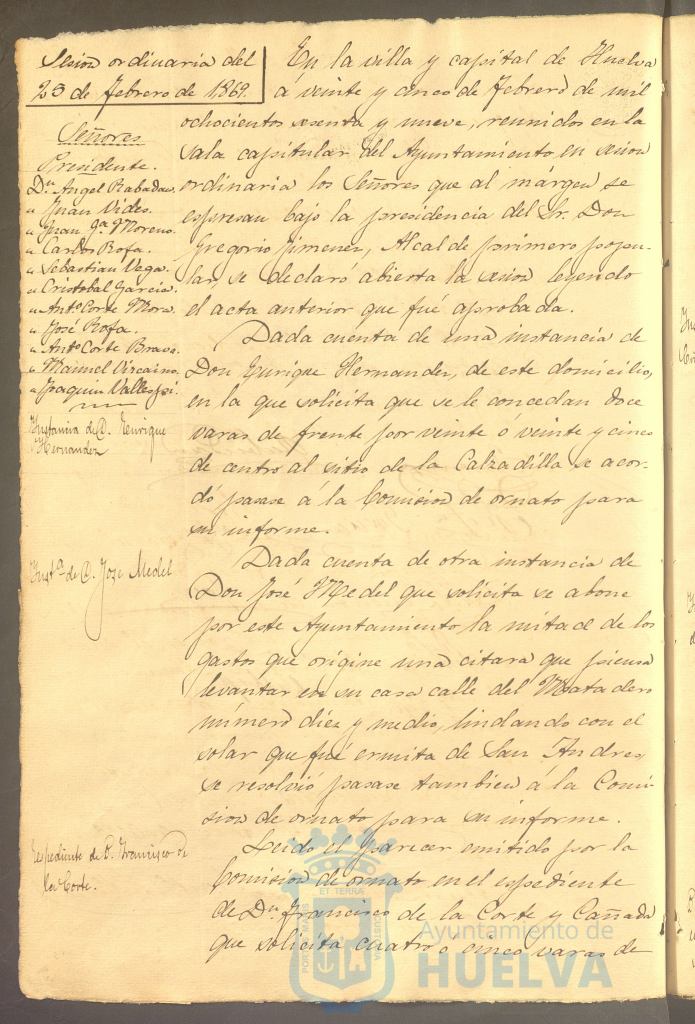 Sesion ordinaria del
25 de Febrero de 1869.
Señores
Presidente.
Dn. Angel Rabadan.
" Juan Vides.
" Juan Ga. Moreno.
" Carlos Rofa.
" Sebastian Vega.
" Cristobal Garcia.
" Anto. Corte Mora.
" José Rofa.
" Anto. Corte Bravo.
" Manuel Vizcaino.
" Joaquin Vallespi.
En la villa y capital de Huelva
á veinte y cinco de Febrero de mil
ochocientos sesenta y nueve, reunidos en la
sala capitular del Ayuntamiento en sesion
ordinaria los Señores que al márgen se
espresan bajo la presidencia del Sr. Don
Gregorio Jimenez, Alcalde primero popu-
lar, se declaró abierta la sesion leyendo
el acta anterior que fué aprobada.
Instancia de D. Enrique
Hernandez
Dada cuenta de una instancia de
Don Enrique Hernandez, de este domicilio,
en la que solicita que se le concedan doce
varas de frente por veinte ó veinte y cinco
de centro al sitio de la Calzadilla se acor-
dó pasase á la Comision de ornato para
su informe.
Insta. de D. José Medel
Dada cuenta de otra instancia de
Don José Medel que solicita se abone
por este Ayuntamiento la mitad de los
gastos que origine una citara que piensa
levantar en su casa calle del Matadero
número diez y medio, lindando con el
solar que fué ermita de San Andres,
se resolvió pasase tambien á la Comi-
sion de ornato para su informe.
Espediente de D. Francisco de
la Corte.
Leido el parecer emitido por la
Comision de ornato en el espediente
de Dn. Francisco de la Corte y Cañada
que solicita cuatro ó cinco varas de
PORTUS MARIS
ET TERRAE
CUSTODIA
Ayuntamiento de
HUELVA